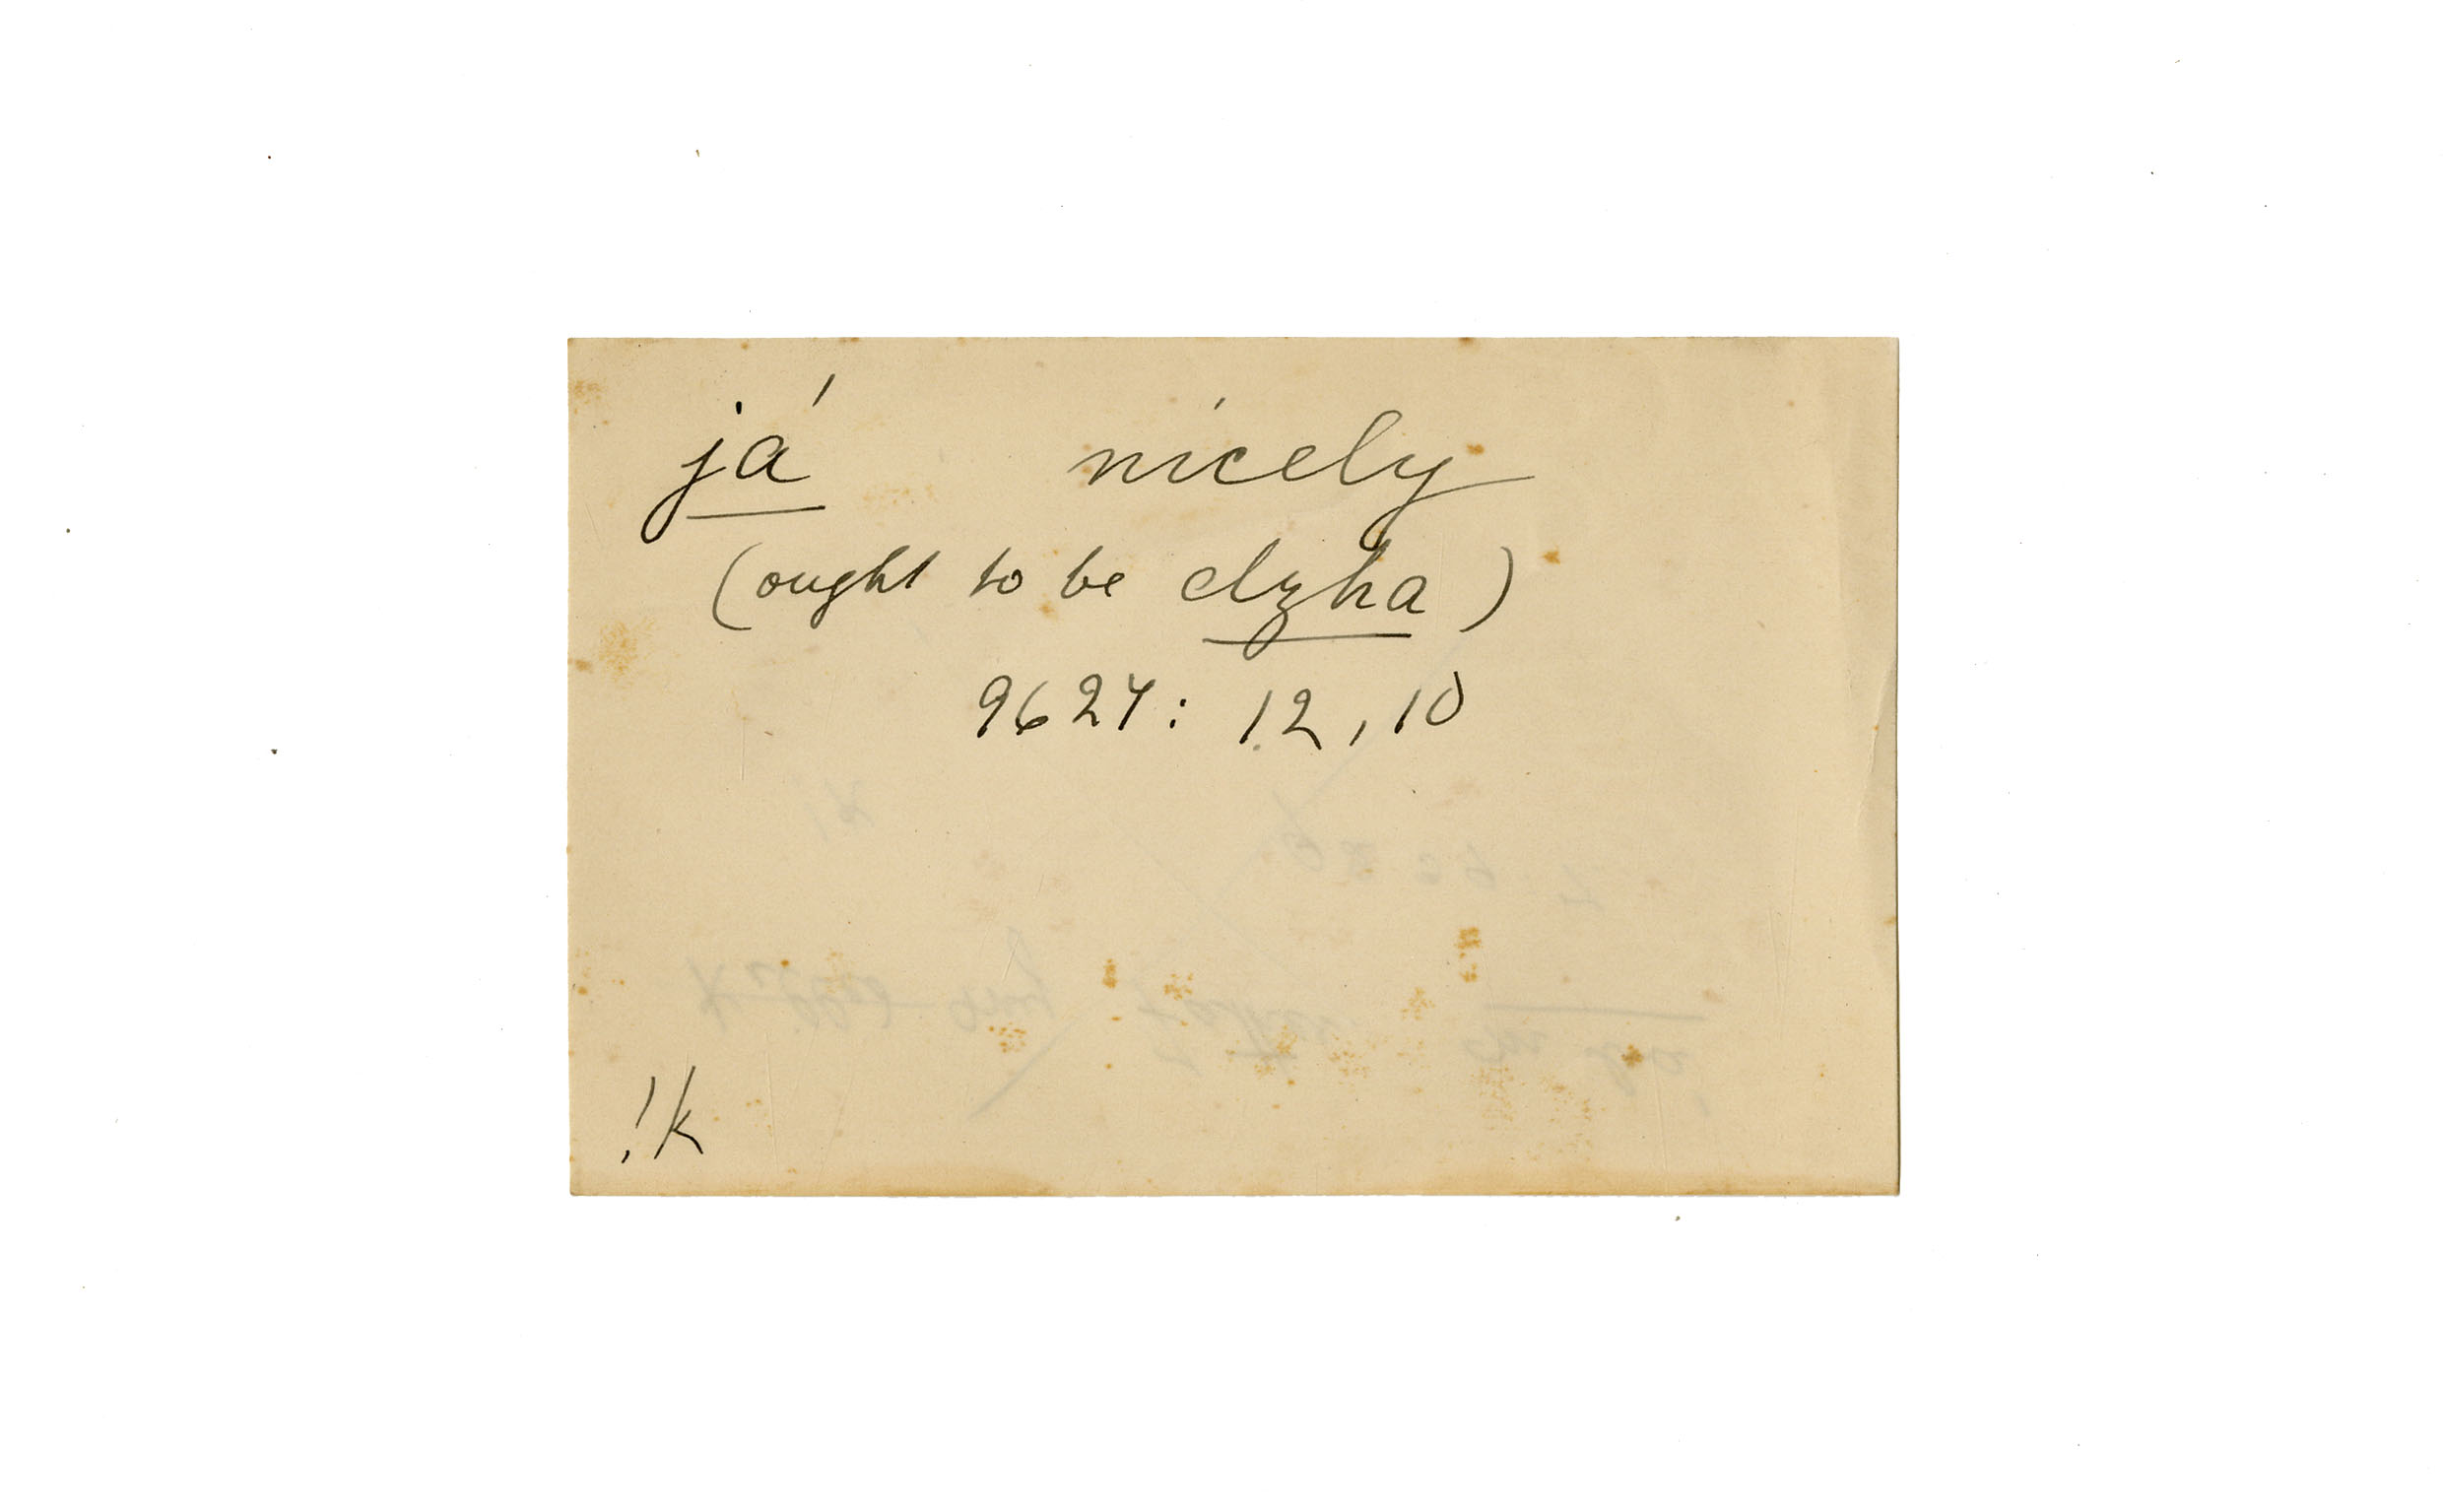 já nicely
(ought to be dzha)
9624: 12, 10
!k